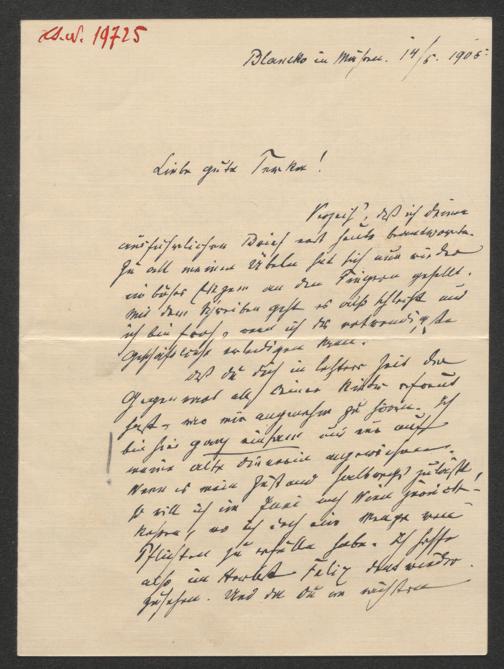 19725
Blansko in Mähren. 14/5. 1905.
Liebe gute !
Verzeih', daß ich deinen
ausführlichen Brief erst heute beantworte.
Zu all meinen Übeln hat sich nun wieder
ein böses Ekzem an den Fingern gesellt.
Mit dem Schreiben geht es also schlecht und
ich bin froh, wenn ich das notwendigste
erledigen kann.
Daß du dich in letzter Zeit der
Gegenwart all deiner Kinder erfreut
hast, war mir angenehm zu hören. Ich
bin hier ganz einsam und nur auf
meine alte Dienerin angewiesen.
Wenn es mein Zustand halbwegs zuläßt
so will ich im Juni nach Wien zurück-
kehren, wo ich doch eine Menge von
Pflichten zu erfüllen habe. Ich hoffe
also im Herbst Felix dort wieder
zusehen. Und da du im nächsten